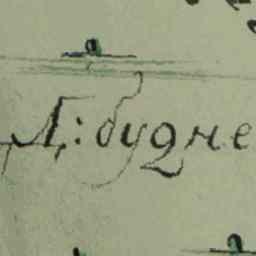 Д: будне